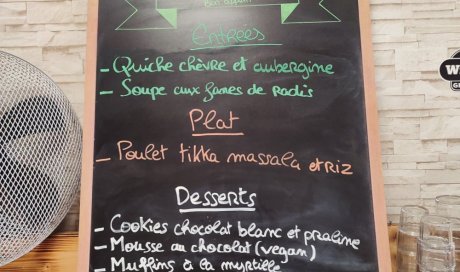 Bon appétit
Entrées
- Quiche chèvre et aubergine
- Soupe aux fanes de radis
Plat
- Poulet tikka massala et riz
Desserts
- Cookies chocolat blanc et praline
- Mousse au chocolat (vegan)
- Muffins à la myrtille